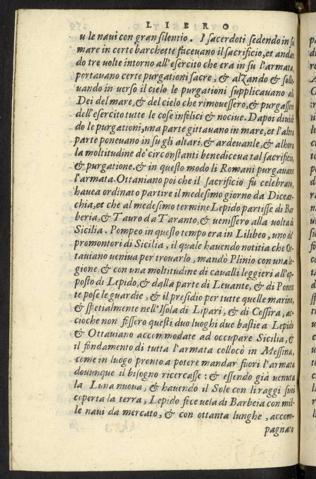 LIBRO
u le naui con gran silentio. I sacerdoti sedendo in su
mare in certe barchette faceuano il sacrificio, et andan
do tre uolte intorno all'esercito che era in su l'armata,
portauano certe purgationi sacre, & alzando & solle
uando in uerso il cielo le purgationi supplicauano
Dei del mare, & del cielo che rimouessero, & purgassero
dell'esercito tutte le cose infelici & nociue. Dapoi diuide
do le purgationi, una parte gittauano in mare, et l'altra
parte poneuano in su gli altari, & ardeuanle, & allhora
la moltitudine de circonstanti benediceua tal sacrificio
& purgatione, & in questo modo li Romani purgauano
l'armata. Ottauiano poi che il sacrificio fù celebrato,
hauea ordinato partire il medesimo giorno da Dicear
chia, et che al medesimo termine Lepido partisse di Bar
beria, & Tauro da Taranto, & uenissero alla uolta di
Sicilia. Pompeo in questo tempo era in Lilibeo, uno de
promontori di Sicilia, il quale hauendo notitia che Ot
tauiano ueniua per trouarlo, mandò Plinio con una le
gione & con una moltitudine di caualli leggieri all'op
posito di Lepido, & dalla parte di Leuante, & di Ponen
te pose le guardie, & il presidio per tutte quelle marine,
& spetialmente nell'Isola di Lipari, & di Cossira, ac
cioche non fossero questi duo luoghi due bastie a Lepido
& Ottauiano accommodate ad occupare Sicilia, &
il fondamento di tutta l'armata collocò in Messina,
come in luogo pronto a potere mandar fuori l'armata
douunque il bisogno ricercasse: & essendo già uenuta
la Luna nuoua, & hauendo il Sole con li raggi suoi
coperta la terra, Lepido fece uela di Barberia con mil
le naui da mercato, & con ottanta lunghe, accom-
pagnato